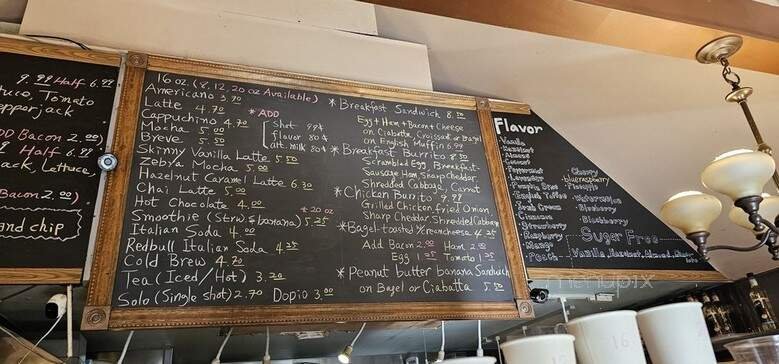 9.99 Half 6.99
Tomato
pepperjack
ADD Bacon 2.00)
Half 6.99
Lettuce,
Bacon 2.00)
and chip
16 oz. (8, 12, 20 oz Available)
Americano 3.70
Latte 4.70
Cappuchino 4.70
Mocha 5.00
Breve 5.50
Skinny Vanilla Latte 5.50
Zebra Mocha 5.00
Hazelnut Caramel Latte 6.30
Chai Latte 5.00
Hot Chocolate 4.00
Smoothie (Straw & banana) 5.25
* 20 oz
Italian Soda 4.00
Redbull Italian Soda 4.75
Cold Brew 4.70
Tea (Iced/Hot) 3.20
Solo (Single shot) 2.70 Dopio 3.00
* ADD
shot 99¢
flavor 80¢
alt. milk 80¢
* Breakfast Sandwich 8.50
Egg + Ham + Bacon + Cheese
on Ciabatta, Croissat or Bagel
on English Muffin 6.99
* Breakfast Burrito 8.50
Scrambled Egg, Breakfast
Sausage, Ham, Sharp Cheddar
Shredded Cabbage, Carrot
* Chicken Burrito 9.99
Grilled Chicken, fried Onion
Sharp Cheddar, Shredded Cabbage
* Bagel-toasted w/creamcheese 4.25
Add Bacon 2.00 Ham 2.00
Egg 1.75 Tomato 1.75
* Peanut butter banana Sandwich
on Bagel or Ciabatta 5.50
Flavor
Vanilla
Hazelnut
Almond
Caramel
Peppermint
Lavender
Pumpkin Spice
English Toffee
Coconut
Irish Cream
Cinnamon
Strawberry
Raspberry
Mango
Peach
Cherry
blueraspberry
Pineapple
Watermelon
Blueberry
Blackberry
Sugar Free
Vanilla, Hazelnut, Almond,
menupix